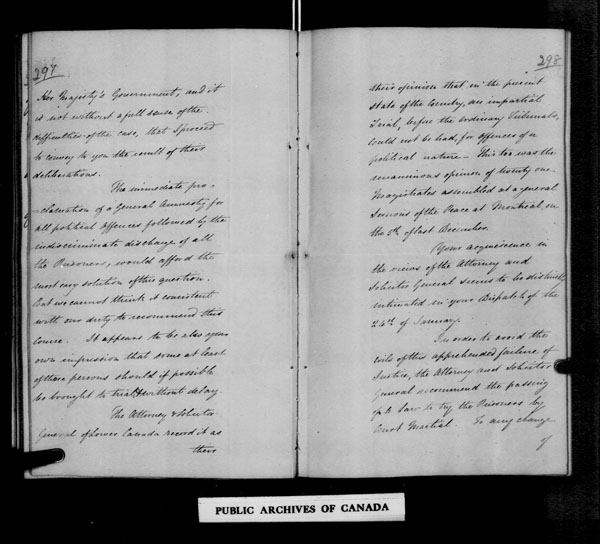 297
Her Majesty's Government, and it
is not without a full sense of the
difficulties of the case, that I proceed
to convey to you the result of their
deliberations.
The immediate pro-
-clamation of a General Amnesty for
all political offences followed by the
indiscriminate discharge of all
the Prisoners, would afford the
most easy solution of this question.
But we cannot think it consistent
with our duty to recommend this
course. It appears to be also your
own impression that some at least
of these persons should if possible
be brought to trial without delay.
The Attorney & Solicitor
General of Lower Canada record it as
their
298
their opinion that in the present
state of the Country, an impartial
Trial, before the ordinary Tribunals,
could not be had, for offences of a
political nature - This too was the
unanimous opinion of twenty one
Magistrates assembled at a general
Sessions of the Peace at Montreal on
the of last December.
Your acquiescence in
the views of the Attorney and
Solicitor General seems to be distinctly
intimated in your Dispatch of the
24th of January.
In order to avoid the
evils of this apprehended failure of
Justice, the Attorney and Solicitor
General recommend the passing
of a Law to try the Prisoners by
Court Martial. To any change
of
PUBLIC ARCHIVES OF CANADA